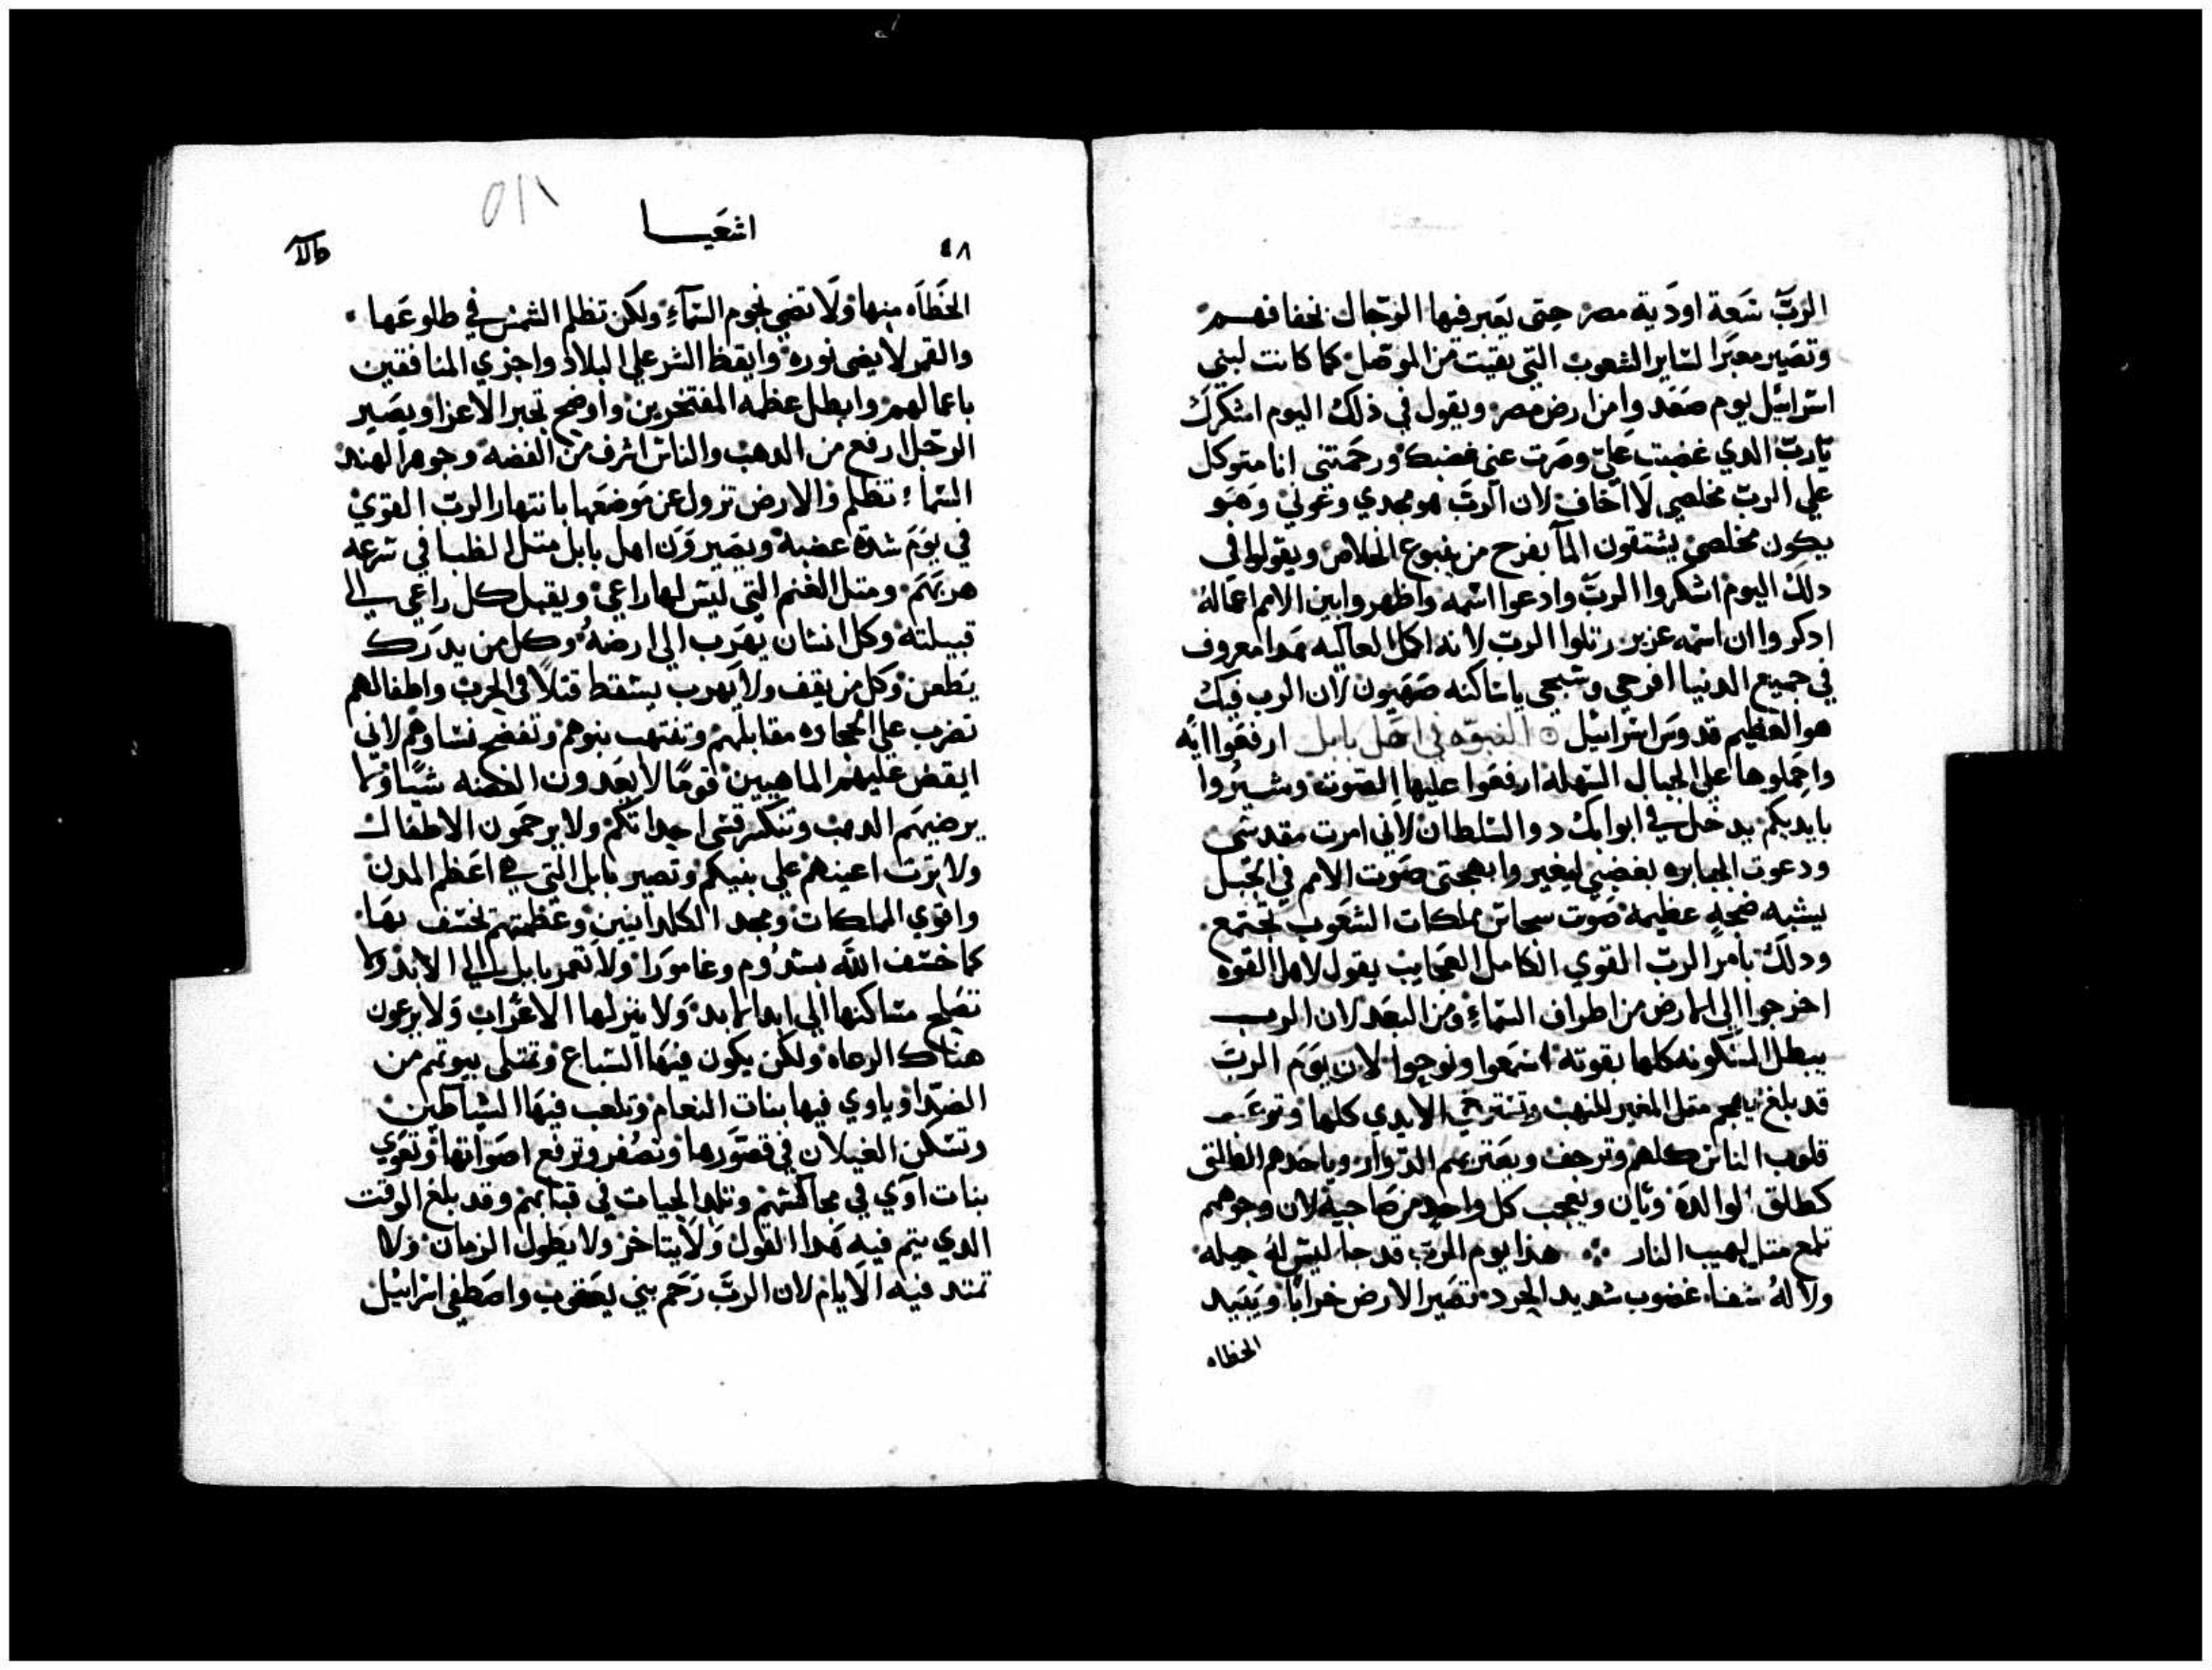 الربّ سَبعة اودَية مصر حتى يَعبر فيها الرّجال بخفافهم
وتصَير معبَرا لسَاير الشعوب التي بقيت من الموصل كما كانت لبني
اسرائيل يوم صَعَد وامن ارض مصر ويقول في ذلك اليوم اشكرك
يَاربّ الدي غضبت عَليّ وصرت عني غضبك ورحمتني انا متوكل
علي الربّ مخلصي لَا اخاف لان الربّ هو مجدي وعوني وَهَو
يكون مخلصي يستقون الماَ بفرح من ينبوع الخلاص ويقولوا في
دلك اليوم اشكروا الربّ وادعوا اسمه واظهروا بين الامم اعمَالهُ
ادكروا ان اسمَه عزيز رتلوا الربّ لانه اكمل العاليه هَدا معروف
في جميع الدنيا افرحي وسَبحي ياسَاكنه صَهيون لان الرب فيك
هو العظيم قدوسَ اسرائيل ○ النبوّه في اجل بابل ارفعَوا ايَه
واحملوها علي الجبال السَهله ارفعَوا عليها الصَوت وشَيروا
بايديكم يدخل في ابوابك دوا السَلطان لاني امرت مقدسَي
ودعوت الجبابره بغضبي ليغير وابهجتي صَوت الامم في الجبَل
يشبه ضجةٍ عظيمة صَوت سجاس مملكات الشعَوب تجتمع
ودلكَ بامر الربّ القوي الكامل العجَايب يقول لاهل القوه
اخرجوا الي الارض من اطراف السَماءِ ومن البعَد لان الرب
يبطل المسَكونه كلها بقوته اسَمعَوا ونوحوا لان يوَم الربّ
قد بلغ يهجم متل المغير للنهب وتسَترخي الايدي كلها وترعَب
قلوب الناس كلهم وترجف ويعَتريهم الدوار وياخدهم الطلق
كطلق الوالدهَ ويعجب كل واحد من صَاحبه لان وجوههم
تلمع متل لهيب النار ∴ هدا يوم الربّ قد جا ليسَ لهُ حيله
ولا لهُ شفاء غضوب شديد الحرد تصَير الارض خرابًا ويَبَيد
الخطاه
٤٨
اشعَيا
الخَطاَه منها ولَا تضي نجوم السَمآءِ ولكن تظلم الشمس في طلوعَها
والقمر لا يضي نوره وايقظ الشر علي البلاد واجزي المنافقين
باعمالهم وابطل عظمه المفتخرين واوضح تجبر الاعزا ويصَير
الرجل ارفع من الدهب والناس اشرف من الفضه وجوهر الهند
السَما تظلم والارض تزول عن موضعَها بانتهار الربّ القوي
في يوَم شدة غضبه ويصَيرون اهل بابل متل الظبا في سَرعه
هربهَم ومتل الغنم التي ليسَ لها راعي ويقبل كل راعي الي
قبيلته وكل انسَان يهَرب الي ارضهُ وكل من يدرَك
يَطعن وكل من يقف ولا يَهرب يسَقط قتلاً في الحرب واطفالهم
تضرب علي الحجاره مقابلهم وتنتهب بيوتهم وتفضح نسَاوهم لاني
ايقض عليهم الماهيين قومًا لا يعَدون الفضه شيًا ولا
يرضيهَم الدهب وتنكسَر قسَي احداثكم ولا يرحمَون الاطفال
ولا ترَت اعينهم علي بنيكم وتصير بابل التي هي اعَظم المدن
واقوي المملكات ومجد الكلدانيين وعَظمتهم تخسَف بهَا
كما خسَف اللَه بسَدُوم وغامورَا ولَا تعَمر بابل الي الابد ولا
تصَلح مسَاكنها الي ابد الابد ولا ينزلها الاعَراب ولَا يرعون
هناك الرعاه ولكن يكون فيهَا السَباع وتمتلي بيوتهم من
الصَدا وياوي فيها بنات النعام وتلعب فيهَا الشياطين
وتسَكن الغيلان في قصوَرها وتصُفر وترفع اصَواتها وتعَوي
بنات اوَي في محاكسَهم وتلد الحيات في قبَابهم وقد بلغ الوقت
الدي يتم فيه هَدا القول ولَا يتاخر ولا يطول الزمان ولا
تمتد فيه الايام لان الربّ رَحَم بني يعَقوب واصَطفي اسَرائيل